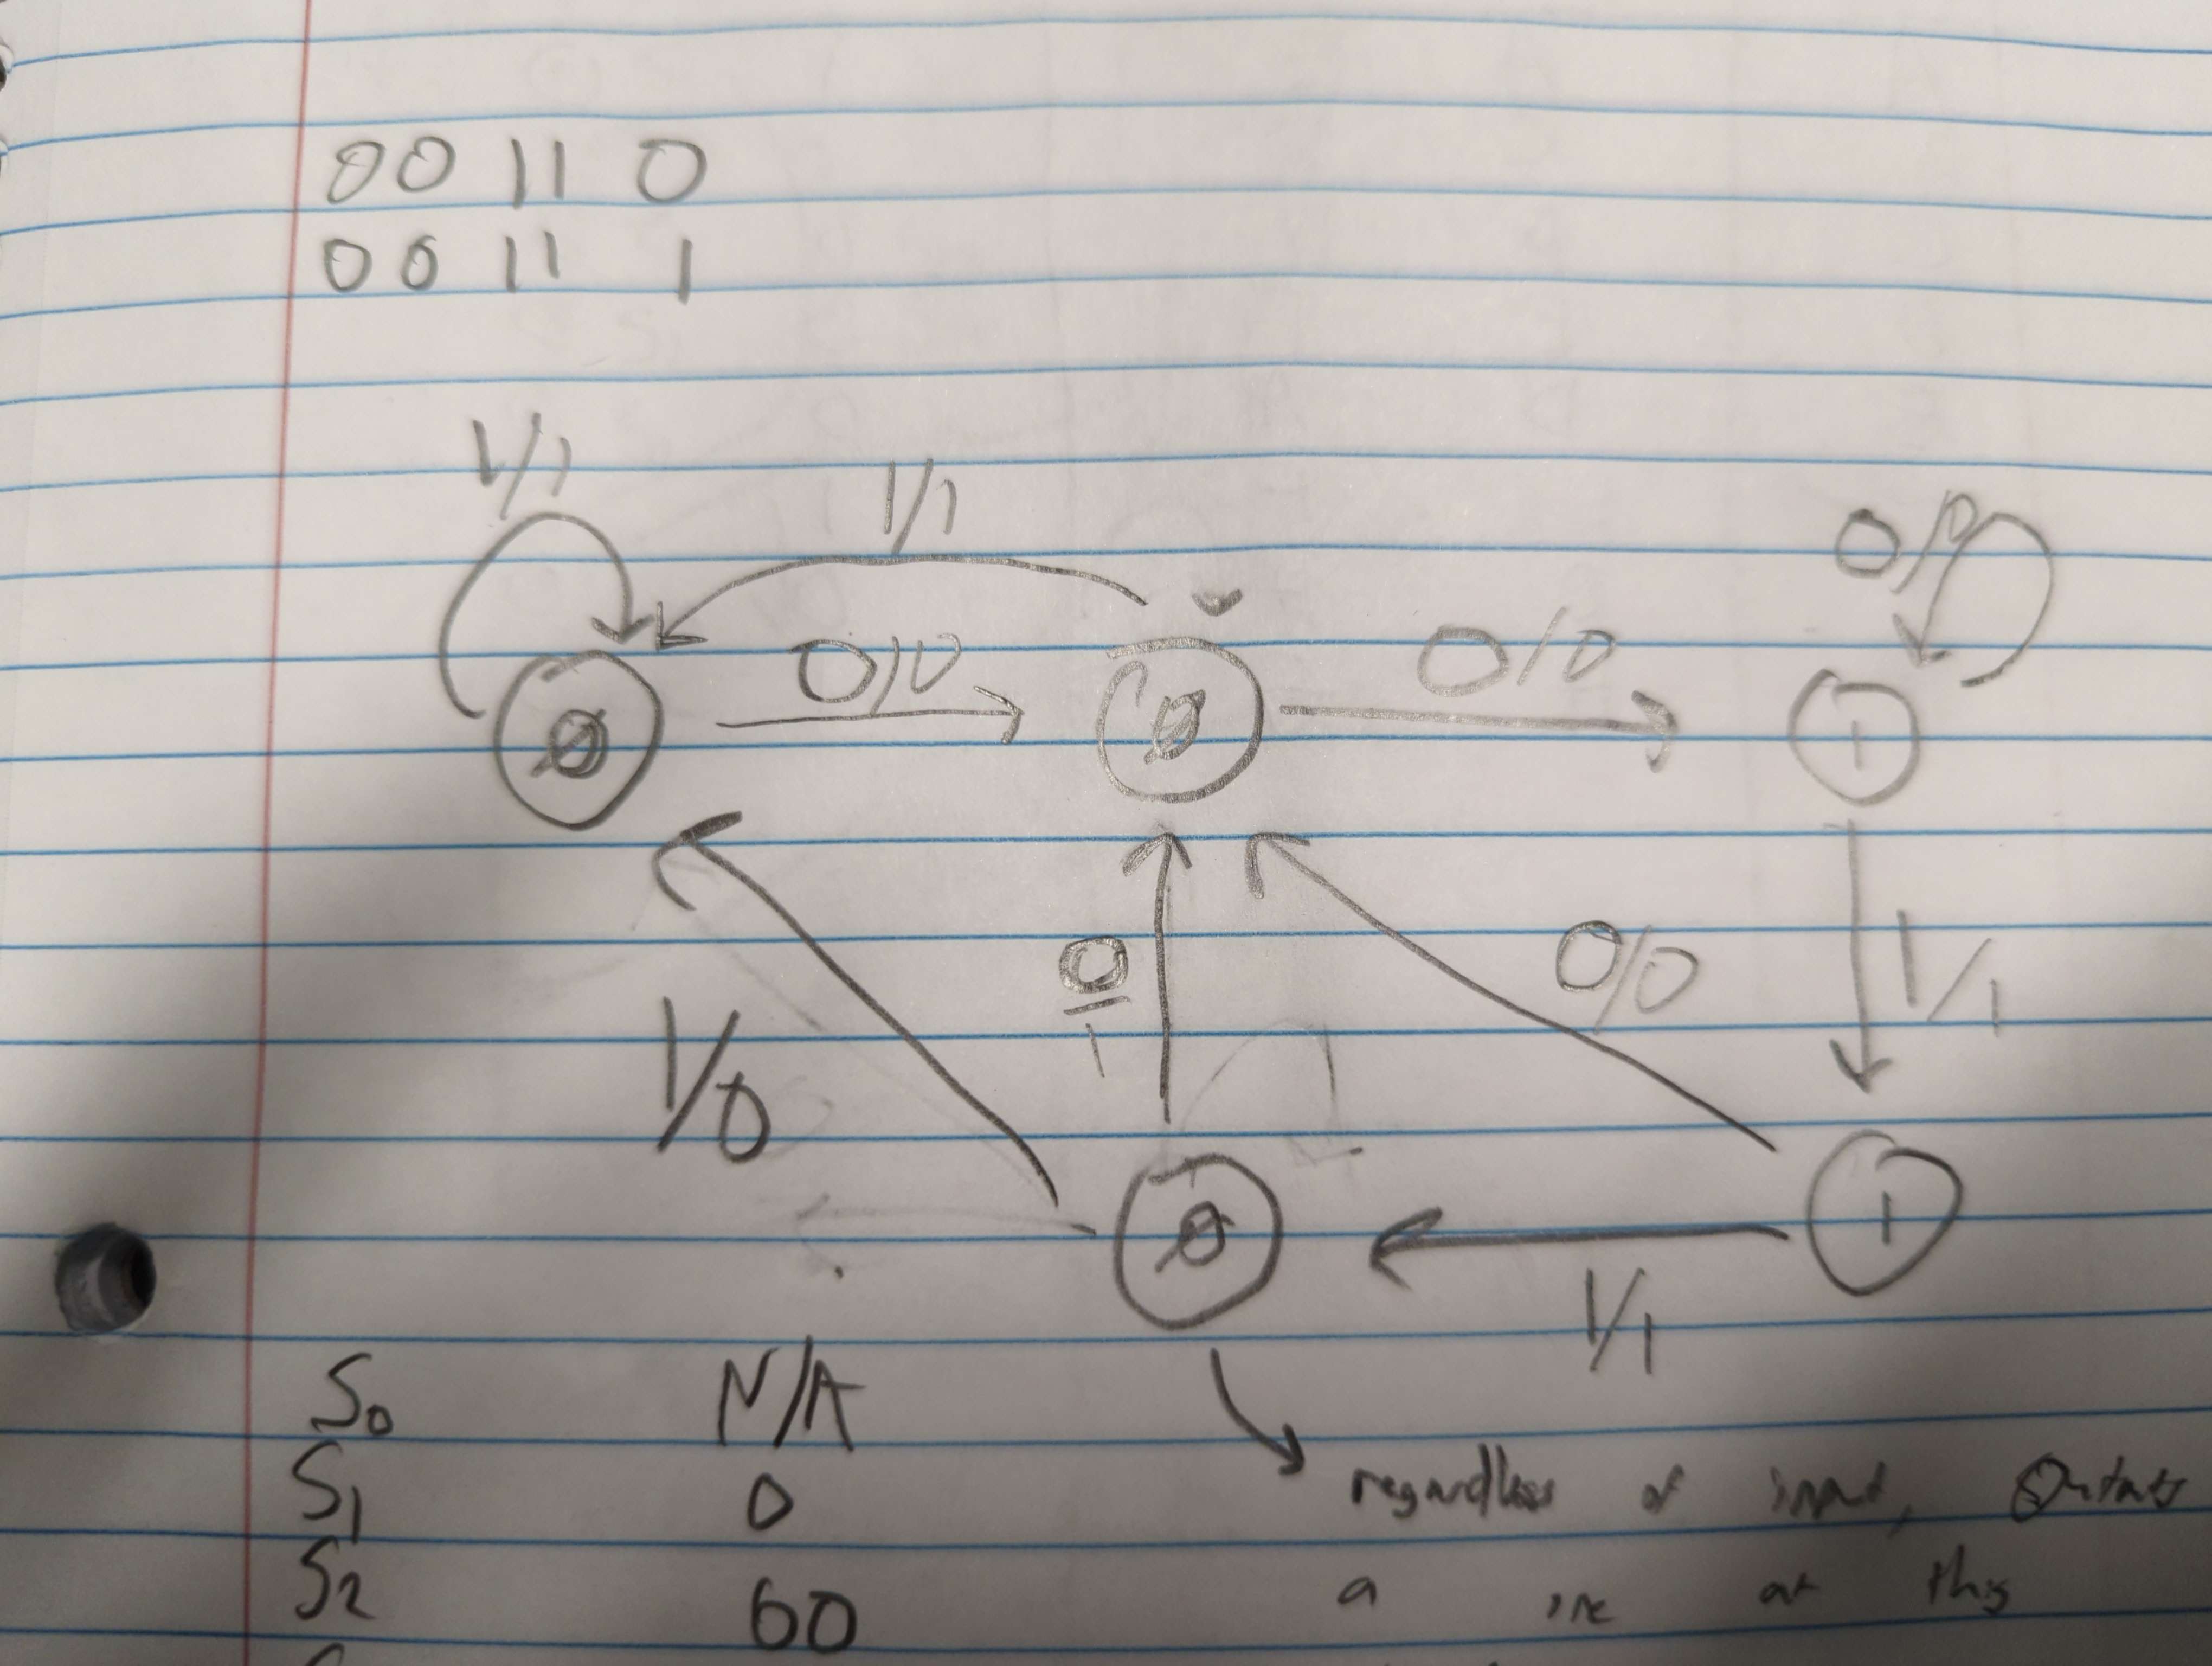 00 11 0
00 11 1
1/1
1/1
0/0
0/0
0/0
0
0
1
1/0
0/1
0/0
1/1
0
1
1/1
S0 N/A
S1 0
S2 00
regardless of input, Outputs
a at this